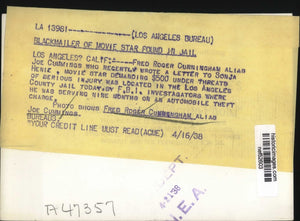 LA 13981-----------(LOS ANGELES BUREAU)
BLACKMAILER OF MOVIE STAR FOUND IN JAIL
LOS ANGELES? CALIF:----FRED ROGER CUNNINGHAM ALIAS
JOE CUMMINGS WHO RECENTLY WROTE A LETTER TO SONJA
HENIE, MOVIE STAR DEMANDING $500 UNDER THREATS
OF SERIOUS INJURY WAS LOCATED IN THE LOS ANGELES
COUNTY JAIL TODAY BY F.B.I. INVESTIGATORS WHERE
HE WAS SERVING NINE MONTHS ON AN AUTOMOBILE THEFT
CHARGE.
PHOTO SHOWS FRED ROGER CUNNINGHAM ALIAS
JOE CUMMINGS.
BUREAUS:
"YOUR CREDIT LINE MUST READ(ACME) 4/16/38
historicimages.com
DEPT.
N.E.A.
A47357